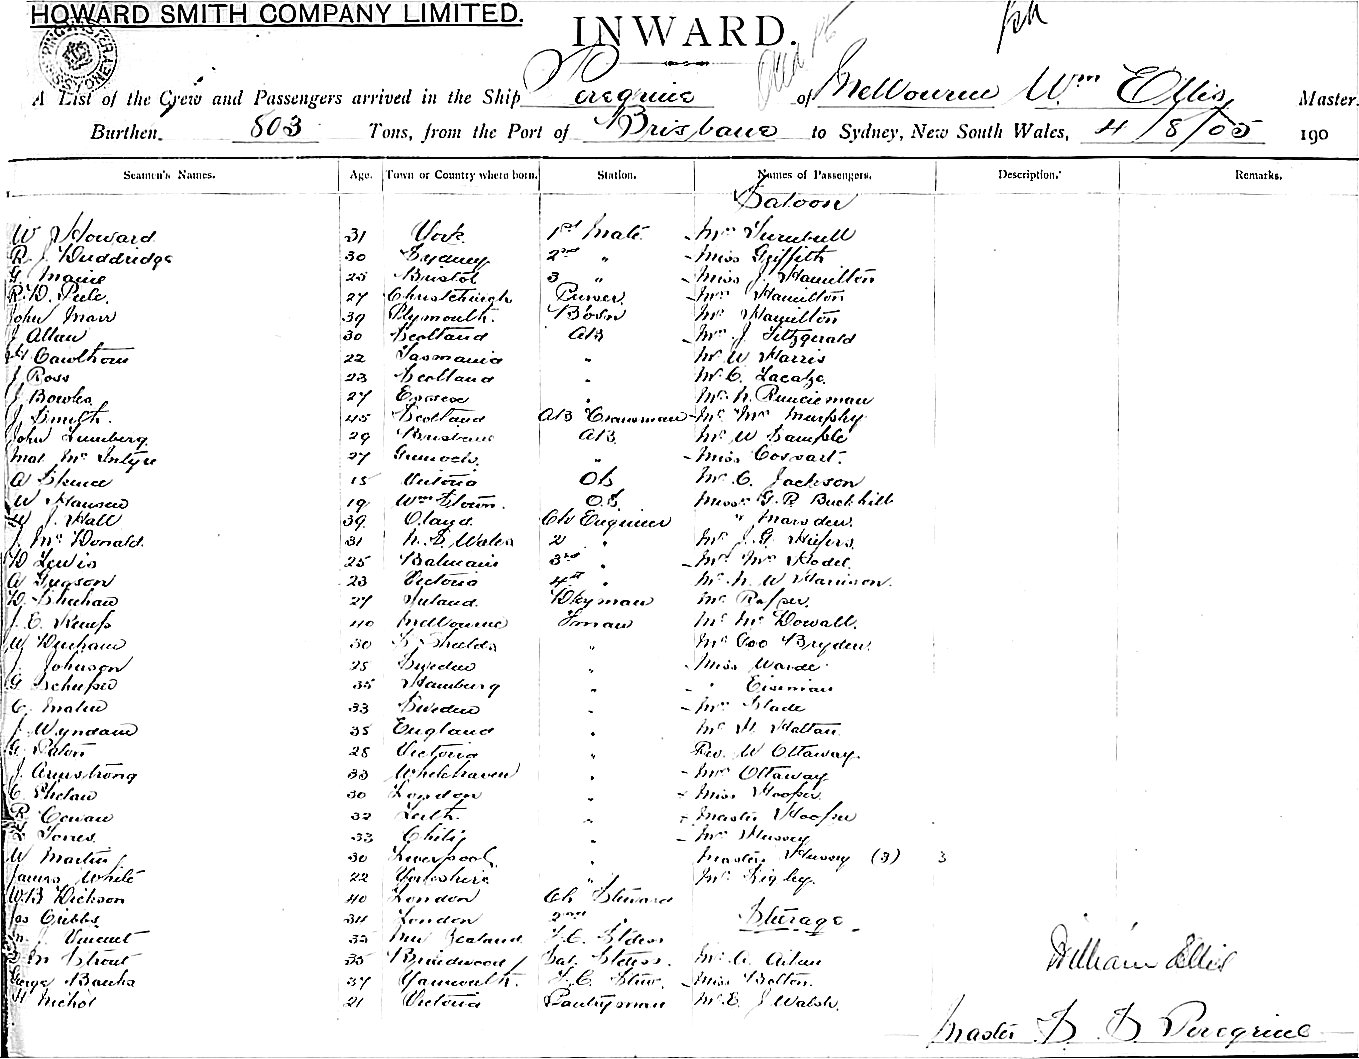 HOWARD SMITH COMPANY LIMITED.
INWARD.
A List of the Crew and Passengers arrived in the Ship Peregrine of Melbourne Wm Ellis Master.
Burthen. 803 Tons, from the Port of Brisbane to Sydney, New South Wales, 4/8/05 190
Seamen's Names. Age. Town or Country where born. Station. Names of Passengers. Description. Remarks.
Saloon
W Howard 31 York 1st Mate Mrs Turnbull
R. J. Duddridge 30 Sydney 2nd " Miss Griffith
G. Maine 25 Bristol 3 " Miss J Hamilton
R. D. Peele. 27 Christchurch Purser Mrs Hamilton
John Marr 39 Plymouth. Bosn Mr Hamilton
J Allan 30 Scotland AB Mrs J. Fitzgerald
Cawthorn 22 Tasmania " Mr W Harris
J Ross 23 Scotland " Mr C. Lacaze.
J Bowles 27 " Mr N. Runcieman
J. Smith. 45 Scotland AB Craneman Mr Mrs Murphy
John Lumberg 29 Brisbane AB. Mr W Sample
Mal McIntyre 27 " Miss Cossart.
A Spence 15 Victoria OS Mr C. Jackson
W Hansen 19 Wm Stown. O.S. Miss G. R. Buckhill
J. Hall 39 Ch Engineer " Marsden.
J. McDonald. 31 N. S. Wales 2 " Mr J. G.
D Lewis 25 Balmain 3rd " Mr Mrs
A Gregson 23 Victoria 4th " Mr N. W Harrison.
D. Sheehan 27 Ireland. Dkyman Mr Rasper.
J. E. Kemp 40 Melbourne Fman Mr McDowall.
W Denham 30 S. Shields " Mr Geo Bryden.
J. Johnson 25 Sweden " Miss Warde
G Scheeper 35 Hamburg " " Eiseman
C. Malm 33 Sweden " Mrs Slade
J. Wyndam 35 England " Mr H. Haltan.
G. Paton 28 Victoria " Rev. W Ottaway.
J. Armstrong 33 Whitehaven " Mrs Ottaway
C Phelan 30 London " Miss Hooper.
R. Cowan 32 Leith. " Master Hooper
Jones. 33 Chili " Mrs Hussey
W Martin 30 Liverpool " Master Hussey (3) 3
James White 22 Yorkshire " Mr Rigby.
W.B Dickson 40 London Ch Steward
Jas Gibbs 34 London 2nd " Steerage
J. Vincent 32 New Zealand. F.C. Stdess
M Strout 35 Braidwood Sal. Stdess. Mr A. Aitan William Ellis
George Banks 37 Yarmouth. F. C. Stew. Miss Bolton.
H Nichol 21 Victoria Pantryman Mr E J Walsh.
Master S. S. Peregrine